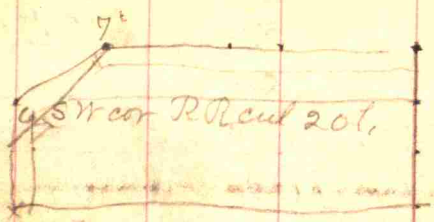 7t
SW cor RR cul 20 l.